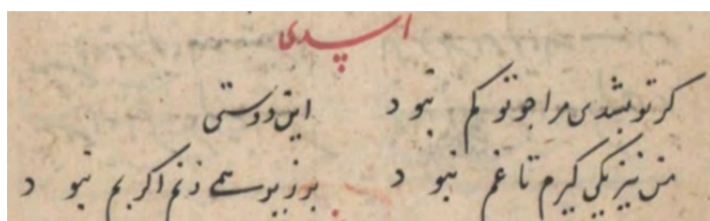 اسدی
کر تو بشدی مرا جو تو کم نبود این دوستی
من نیز یکی کیرم تا غم نبود بر زیر همی زنم اکر بم نبود